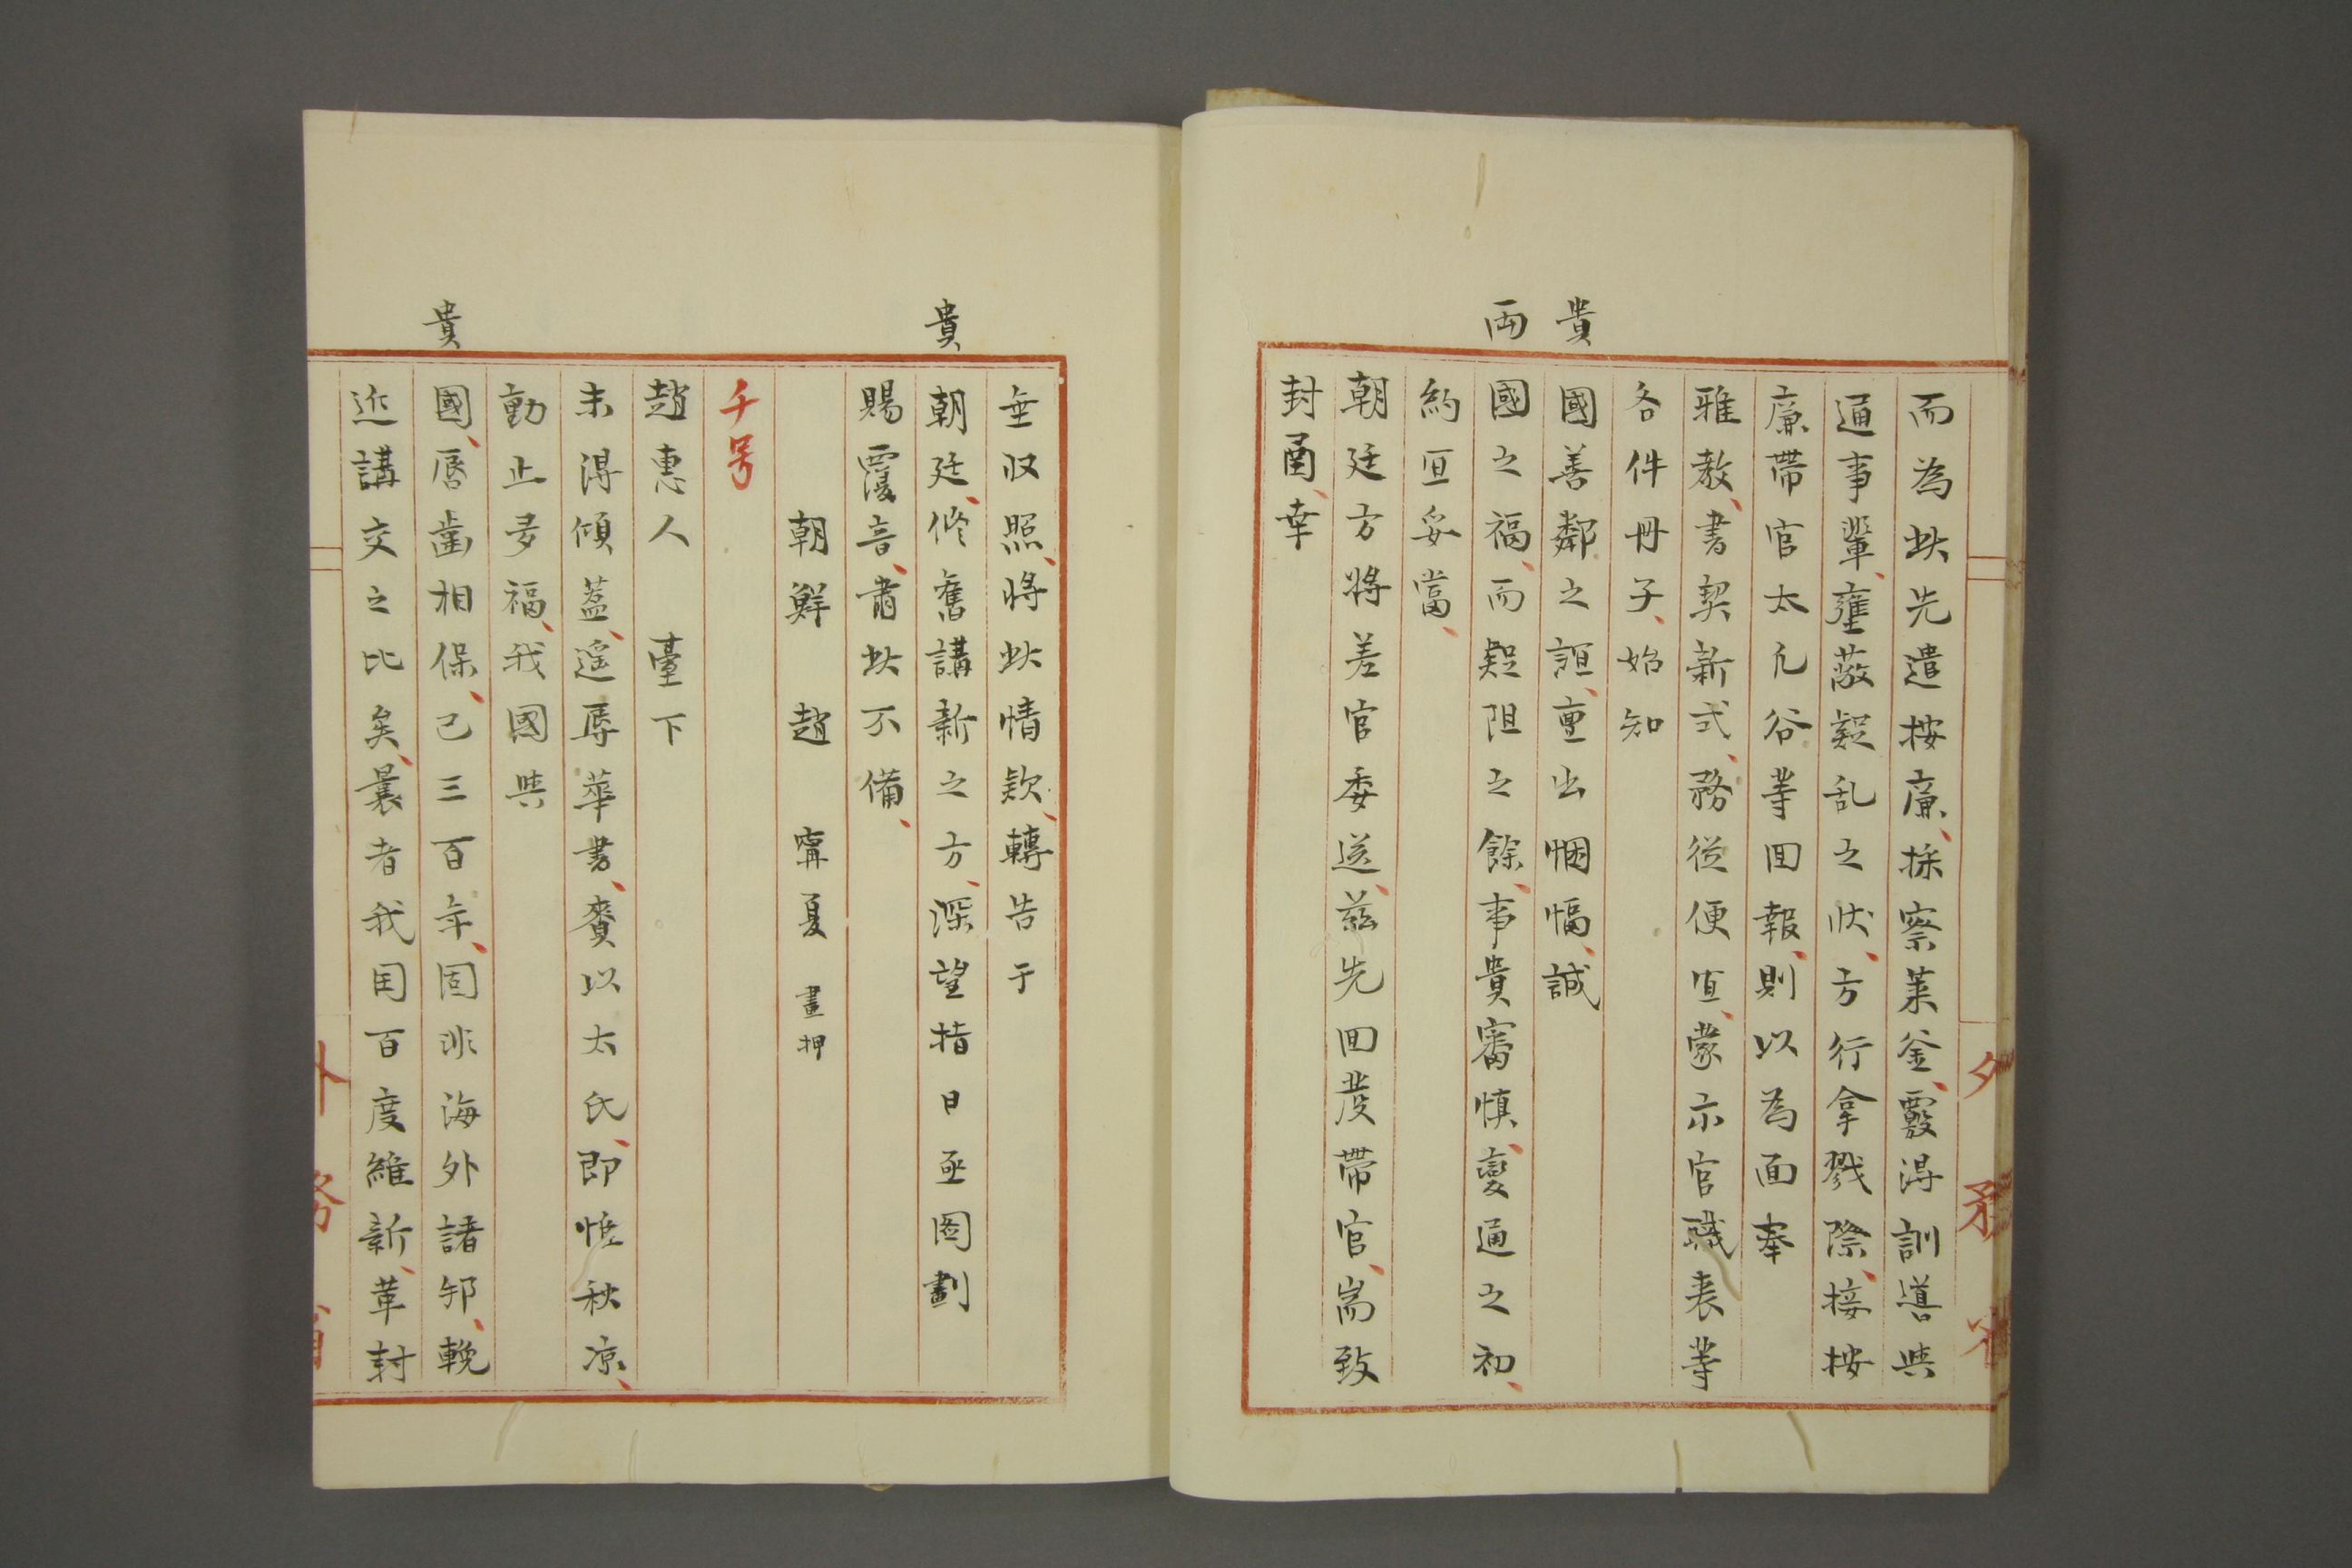 而為此先遣按廉、採察萊釜、覈得訓導與
通事輩、壅蔽疑乱之状、方行拿戮除、接按
廉帶官太凡谷等回報、則以為面奉
雅教、書契新式、務從便宜、蒙示官職表等
各件冊子、始知
貴
國善鄰之誼、亶出悃愊、誠
兩
國之福、而疑阻之餘、事貴審慎、變通之初、
約亘妥當、
朝廷方將差官委送、茲先回茇帶官、耑致
封圅、幸
外務省
垂収照、將此情款、轉告于
貴
朝廷、修舊講新之方、深望指日亟图劃
賜覆音、肅此不備、
朝鮮 趙 寗夏 畫押
千号
趙惠人 臺下
未得傾蓋、遥辱華書、賚以太氏、即惟秋凉、
動止多福、我國與
貴
國、唇齒相保、已三百年、固非海外諸邦、輓
近講交之比矣、曩者我囯百度維新、革封
外務省